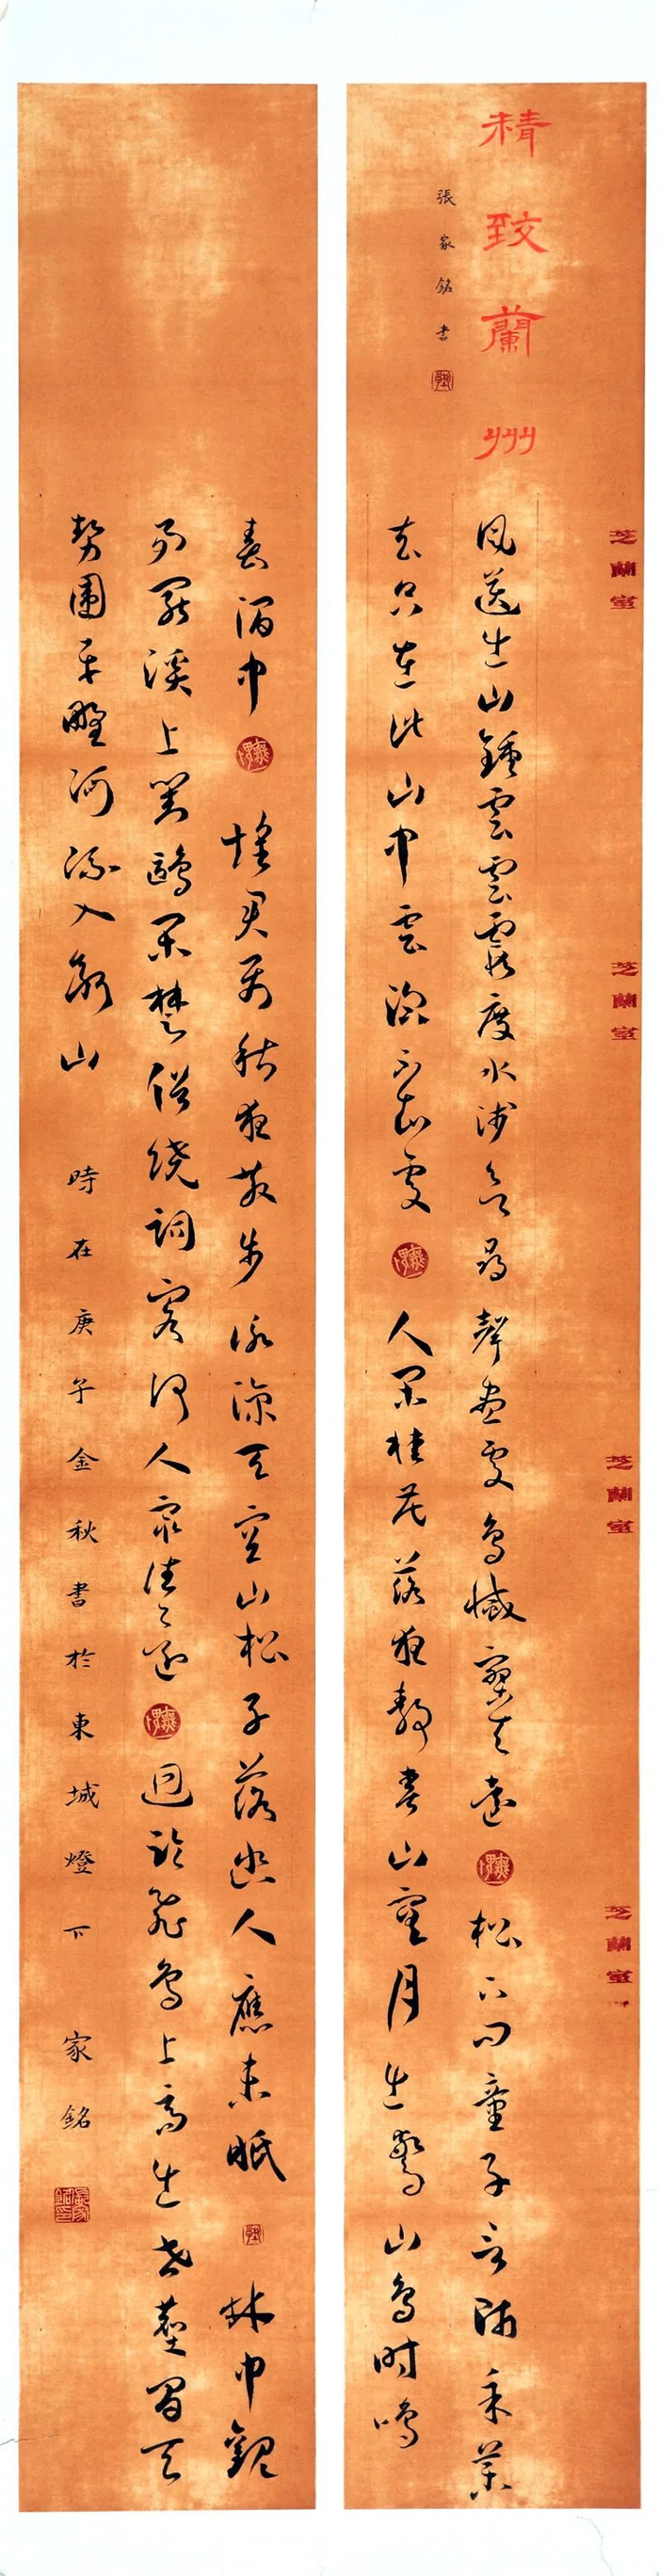 精致蘭州
張家銘書
芝蘭室
芝蘭室
芝蘭室
芝蘭室
風送出山鍾雲雲霞度水淺欲尋聲盡處鳥滅寥天遠 松下問童子言師采藥
去只在此山中雲深不知處 人閑桂花落夜靜春山空月出驚山鳥時鳴
春澗中 懷君屬秋夜散步詠涼天空山松子落幽人應未眠 林中觀
易罷溪上對鷗閑楚俗饒詞客何人最往還 迥臨飛鳥上高出世塵間天
勢圍平野河流入斷山 時在庚子金秋書於東城燈下 家銘